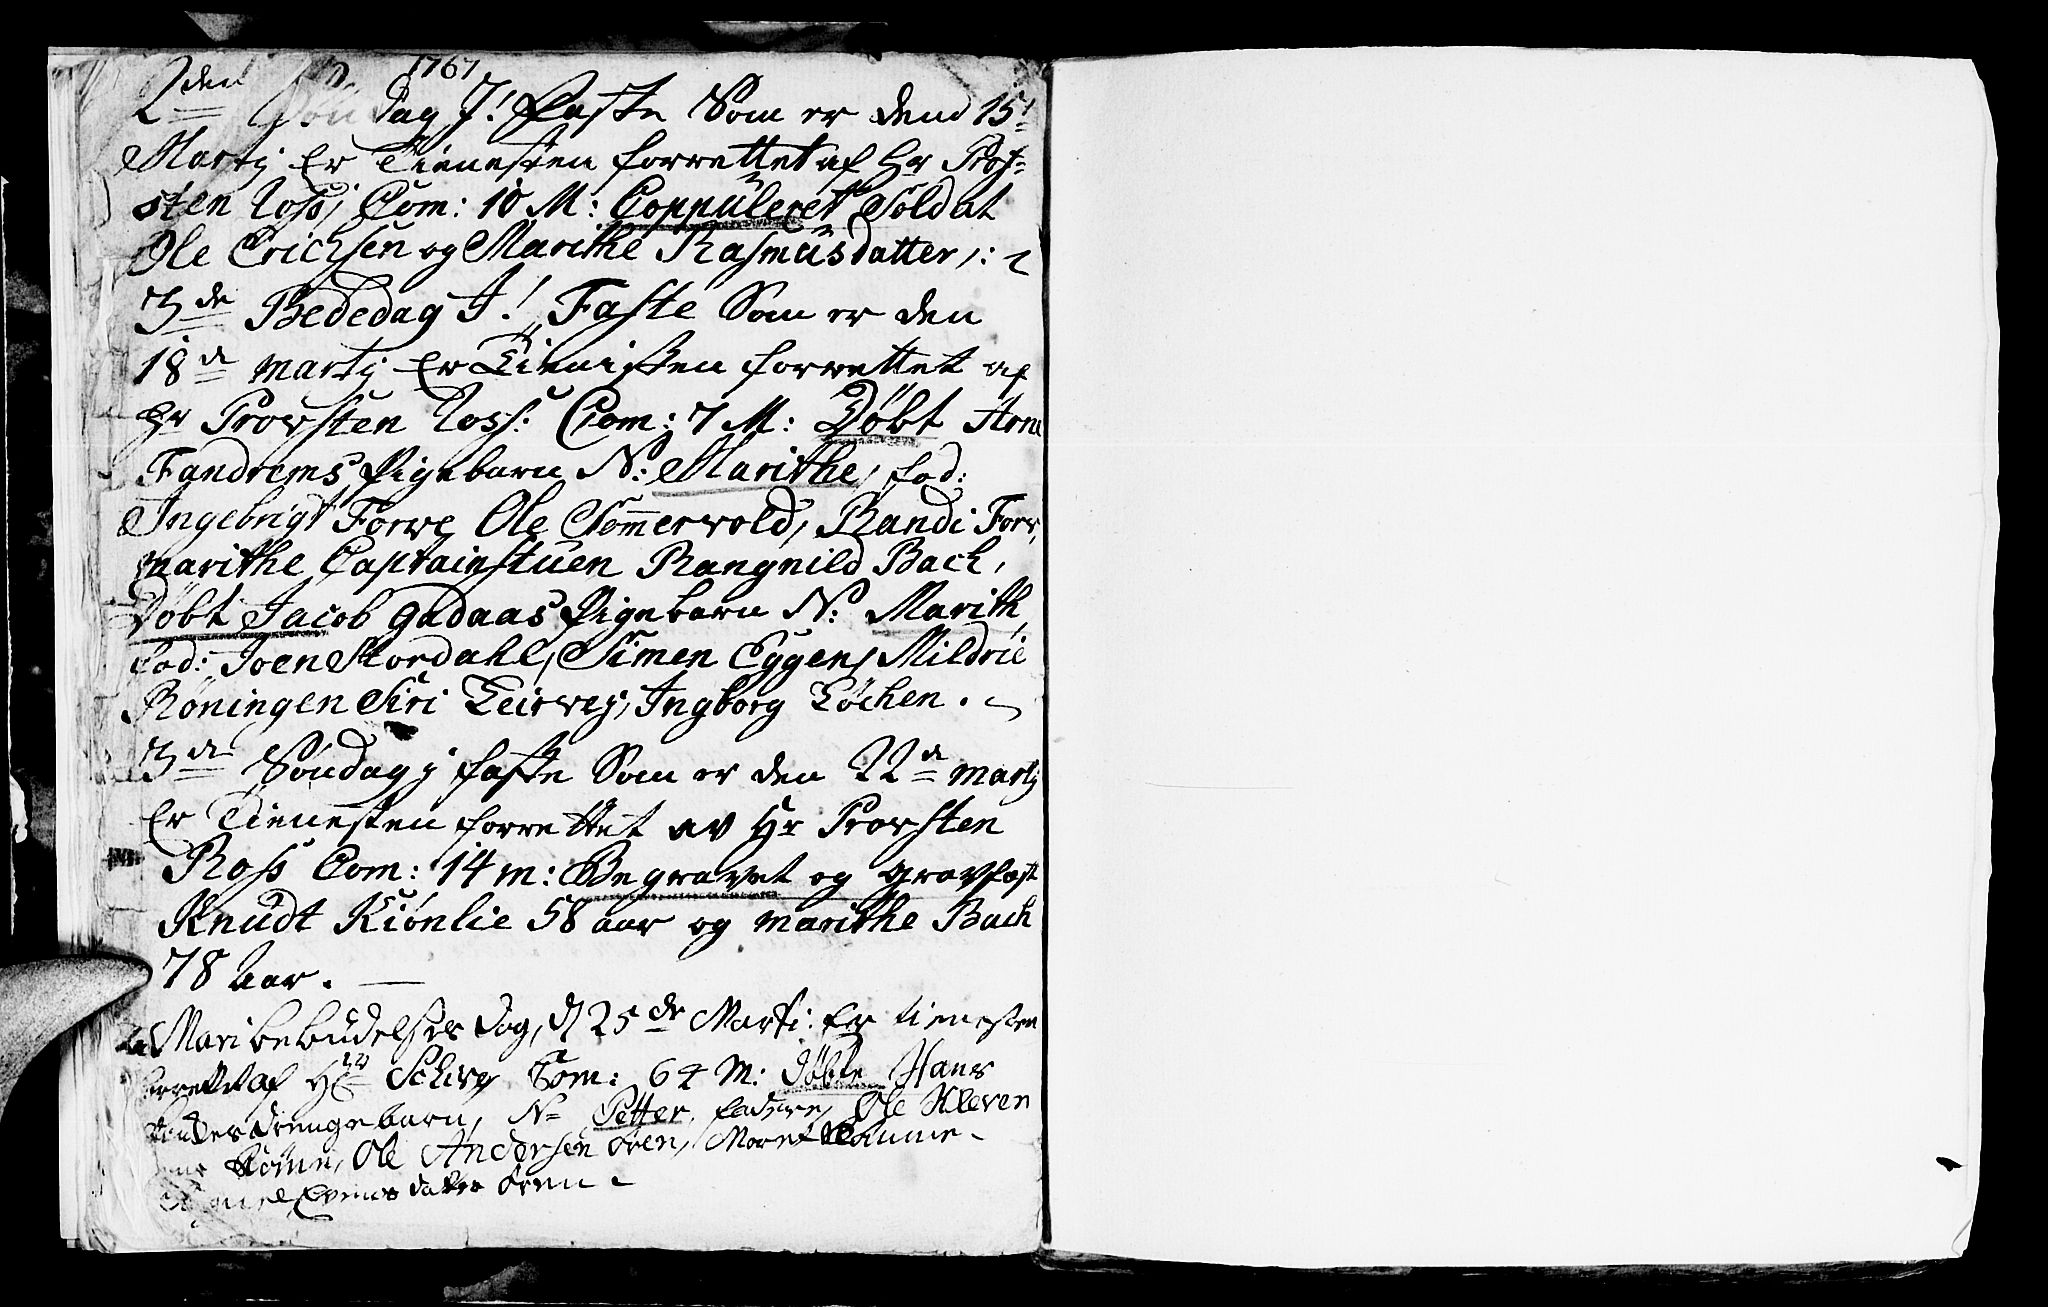 1767
2den Søndag J! Faste Som er dend 15!
Martij Er Tienesten forrettet af Hr Prof-
sten Ross, Com: 10 M: Coppuleret Soldat
Ole Erichsen og Marithe Rasmusdatter,:
3de Bededag J! Faste Som er den
18de martij Er Tienisten forrettet af
Hr Provsten Ross: Com: 7 M: Døbt Arne
Fandrems Pigebarn N: Marithe, fad:
Ingebrigt Forve Ole Sommervold, Randi Forv,
marithe Captainstuen Rangnild Bach,
Døbt Jacob Gadaas Pigebarn N: Marith,
Fad: Joen Skordahl, Simen Eggen, Mildrie
Røningen Siri Leirvig, Ingborg Løchen.
3de Søndag j faste Som er den 22de martij
Er Tienesten forrettet av Hr Provsten
Ross Com: 14 m: Begravet og gravfæst
Knudt Kiønlie 58 aar og marithe Bach
78 Aar.
Mari bebudelses Dag, d 25de Marti: Er tienesten
forrettet af Hr Schivy Com: 64 M: Døbte Hans
drengebarn, N= Petter, faddere, Ole Kleven
Ole Andersen Ören, Maret
Evensdatter Ören